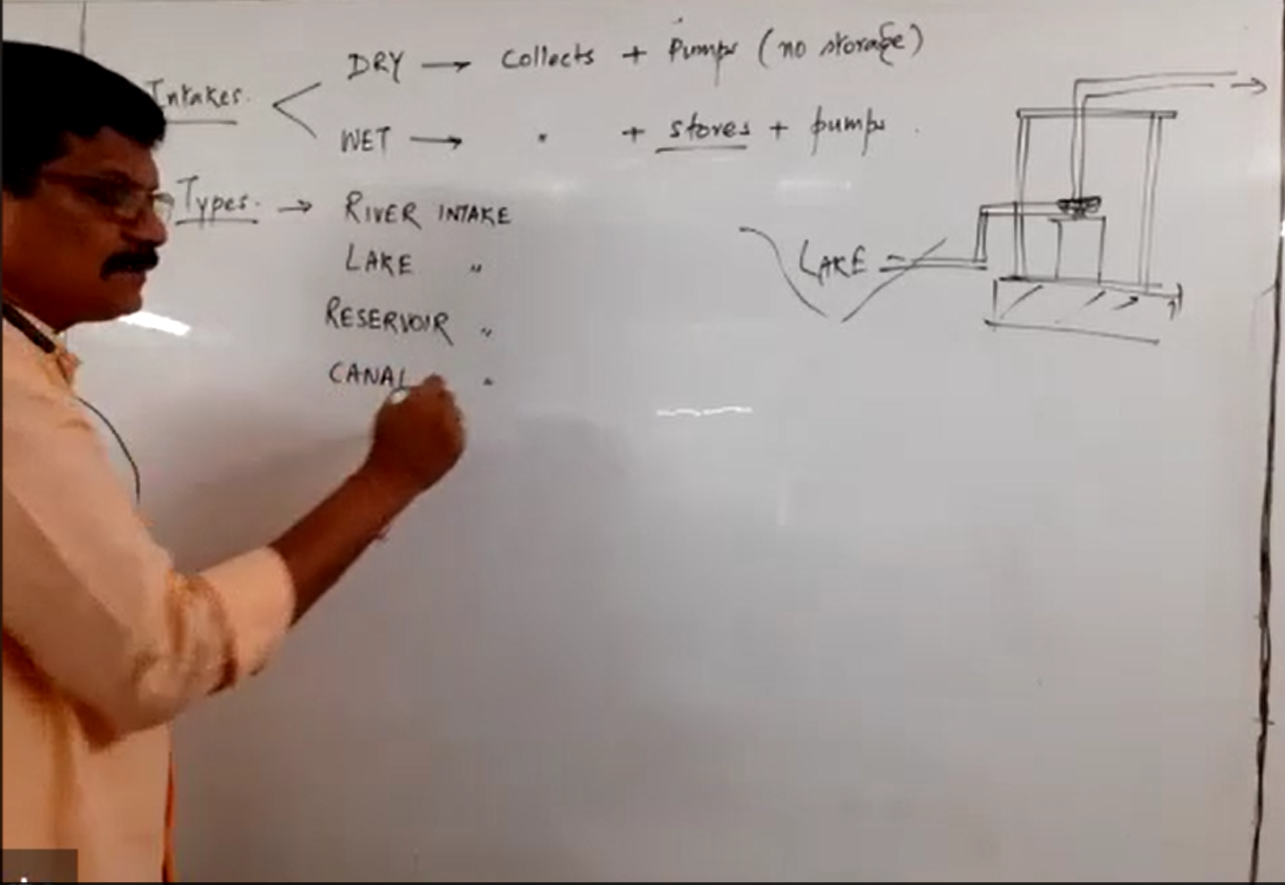 Intakes.
DRY → Collects + Pumps (no storage)
WET → " + stores + pumps.
Types. → RIVER INTAKE
LAKE "
RESERVOIR "
CANAL "
LAKE